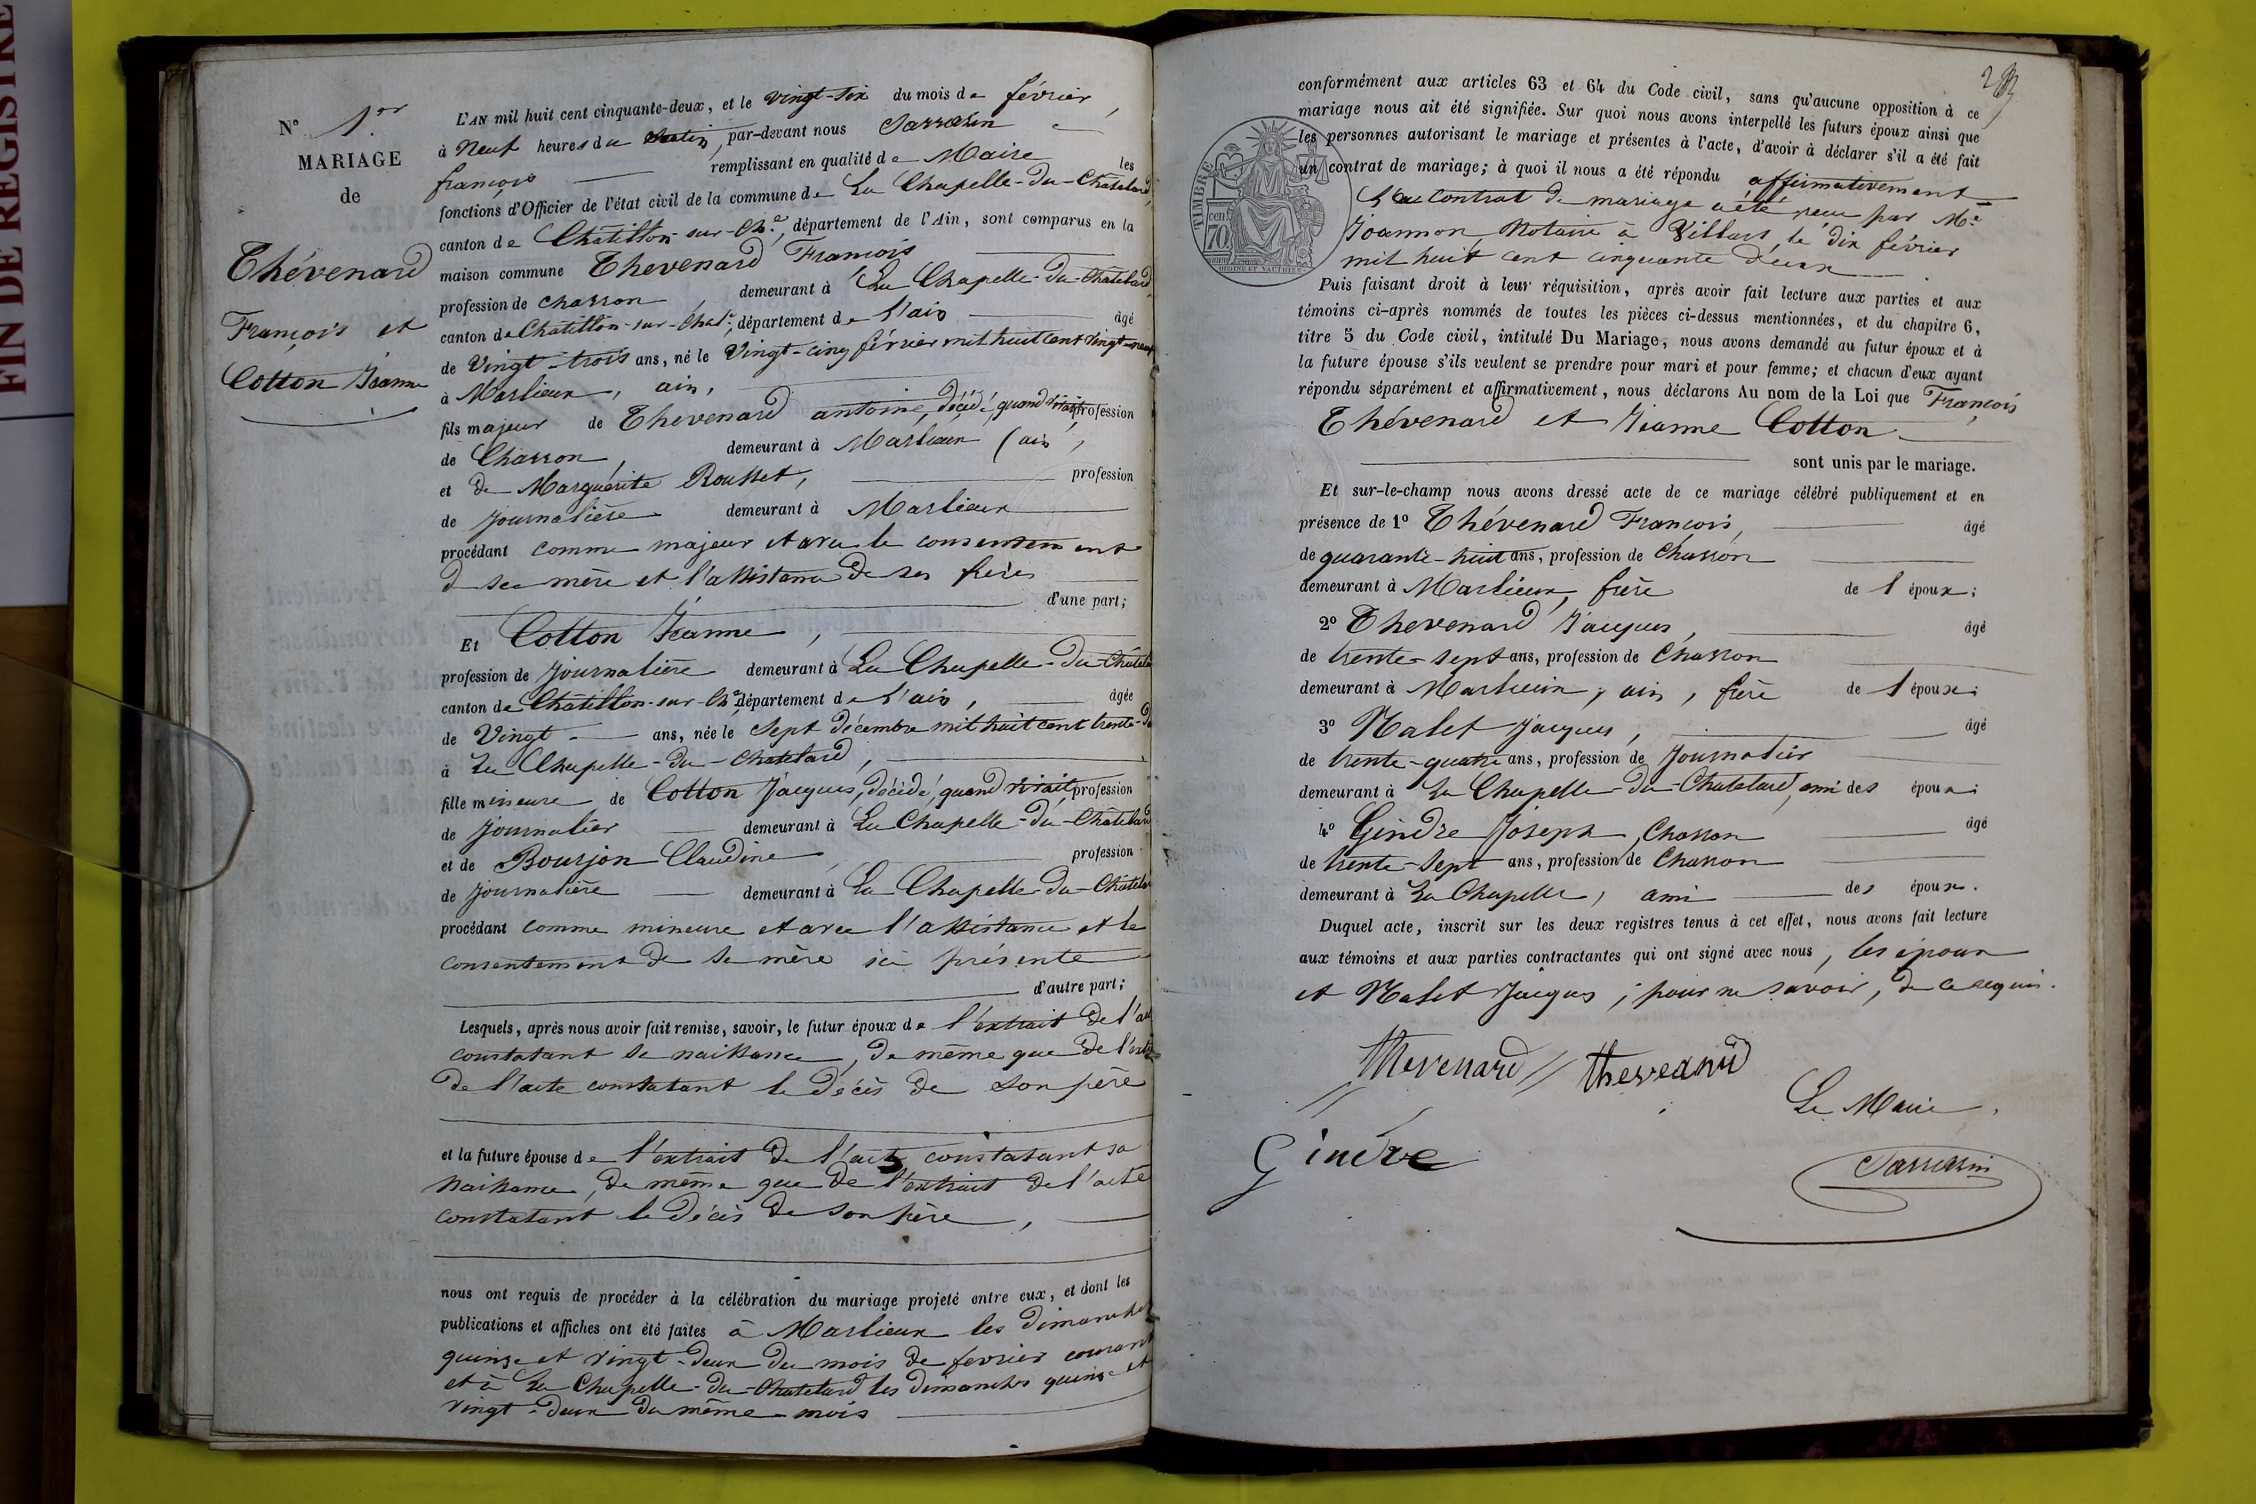 FIN DE REGISTRE
N° 1er
MARIAGE
de
Thévenard
François et
Cotton Jeanne
L'AN mil huit cent cinquante-deux, et le vingt-six du mois de février,
à Neuf heures du matin, par-devant nous Sarrasin
françois remplissant en qualité de Maire les
fonctions d'Officier de l'état civil de la commune de La Chapelle-du-Chatelard,
canton de Châtillon-sur-Ch.e, département de l'Ain, sont comparus en la
maison commune Thevenard François
profession de charron, demeurant à La Chapelle-du-Chatelard,
canton de Chatillon-sur-Chal.e, département de l'ain âgé
de Vingt-trois ans, né le Vingt-cinq février mil huit cent vingt-neuf
à Marlieux, ain,
fils majeur de Thevenard antoine, décédé, quand vivait profession
de Charron, demeurant à Marlieux (ain,
et de Marguerite Rousset, profession
de journalière demeurant à Marlieux
procédant comme majeur et avec le consentement
d sa mère et l'assistance de ses frères
d'une part;
Et Cotton Jeanne,
profession de journalière demeurant à La Chapelle-du-Châtela
canton de Châtillon-sur-Ch.e département de l'ain, âgée
de Vingt ans, née le Sept décembre mil huit cent trente-d
à La Chapelle-du-Chatelard,
fille mineure de Cotton Jacques, décédé, quand vivait profession
de journalier demeurant à La Chapelle-du-Châtelard
et de Bourjon Claudine profession
de journalière demeurant à La Chapelle-du-Châtela
procédant comme mineure et avec l'assistance et le
consentement de sa mère ici présente
d'autre part;
Lesquels, après nous avoir fait remise, savoir, le futur époux de l'extrait de l'a
constatant sa naissance, de même que de l'extr
de l'acte constatant le décès de son père
et la future épouse de l'extrait de l'acte constatant sa
naissance, de même que de l'extrait de l'acte
constatant le décès de son père,
nous ont requis de procéder à la célébration du mariage projeté entre eux, et dont les
publications et affiches ont été faites à Marlieux les dimanches
quinze et vingt-deux du mois de fevrier courant
et à La Chapelle-du-Chatelard les dimanches quinze et
vingt-deux du même mois
conformément aux articles 63 et 64 du Code civil, sans qu'aucune opposition à ce
mariage nous ait été signifiée. Sur quoi nous avons interpellé les futurs époux ainsi que
les personnes autorisant le mariage et présentes à l'acte, d'avoir à déclarer s'il a été fait
un contrat de mariage; à quoi il nous a été répondu affirmativement
TIMBRE
cent
70
contrat de mariage a été reçu par Me
Joannon, Notaire à Villars, le dix février
mil huit cent cinquante deux
Puis faisant droit à leur réquisition, après avoir fait lecture aux parties et aux
témoins ci-après nommés de toutes les pièces ci-dessus mentionnées, et du chapitre 6,
titre 5 du Code civil, intitulé Du Mariage, nous avons demandé au futur époux et à
la future épouse s'ils veulent se prendre pour mari et pour femme; et chacun d'eux ayant
répondu séparément et affirmativement, nous déclarons Au nom de la Loi que François
Thévenard et Jeanne Cotton
sont unis par le mariage.
Et sur-le-champ nous avons dressé acte de ce mariage célébré publiquement et en
présence de 1° Thévenard François, âgé
de quarante-huit ans, profession de Charron
demeurant à Marlieux, frère de l époux;
2° Thevenard Jacques, âgé
de trente-sept ans, profession de Charron
demeurant à Marlieux, ain, frère de l époux;
3° Malet Jacques, âgé
de trente-quatre ans, profession de Journalier
demeurant à La Chapelle-du-Chatelard, ami des époux;
4° Gindre Joseph, Charron âgé
de trente-sept ans, profession de Charron
demeurant à La Chapelle, ami des époux.
Duquel acte, inscrit sur les deux registres tenus à cet effet, nous avons fait lecture
aux témoins et aux parties contractantes qui ont signé avec nous, les époux
et Malet Jacques, pour ne savoir, de ce requis.
Thevenard Theveanrd
Le Maire,
Gindre
Sarrasin